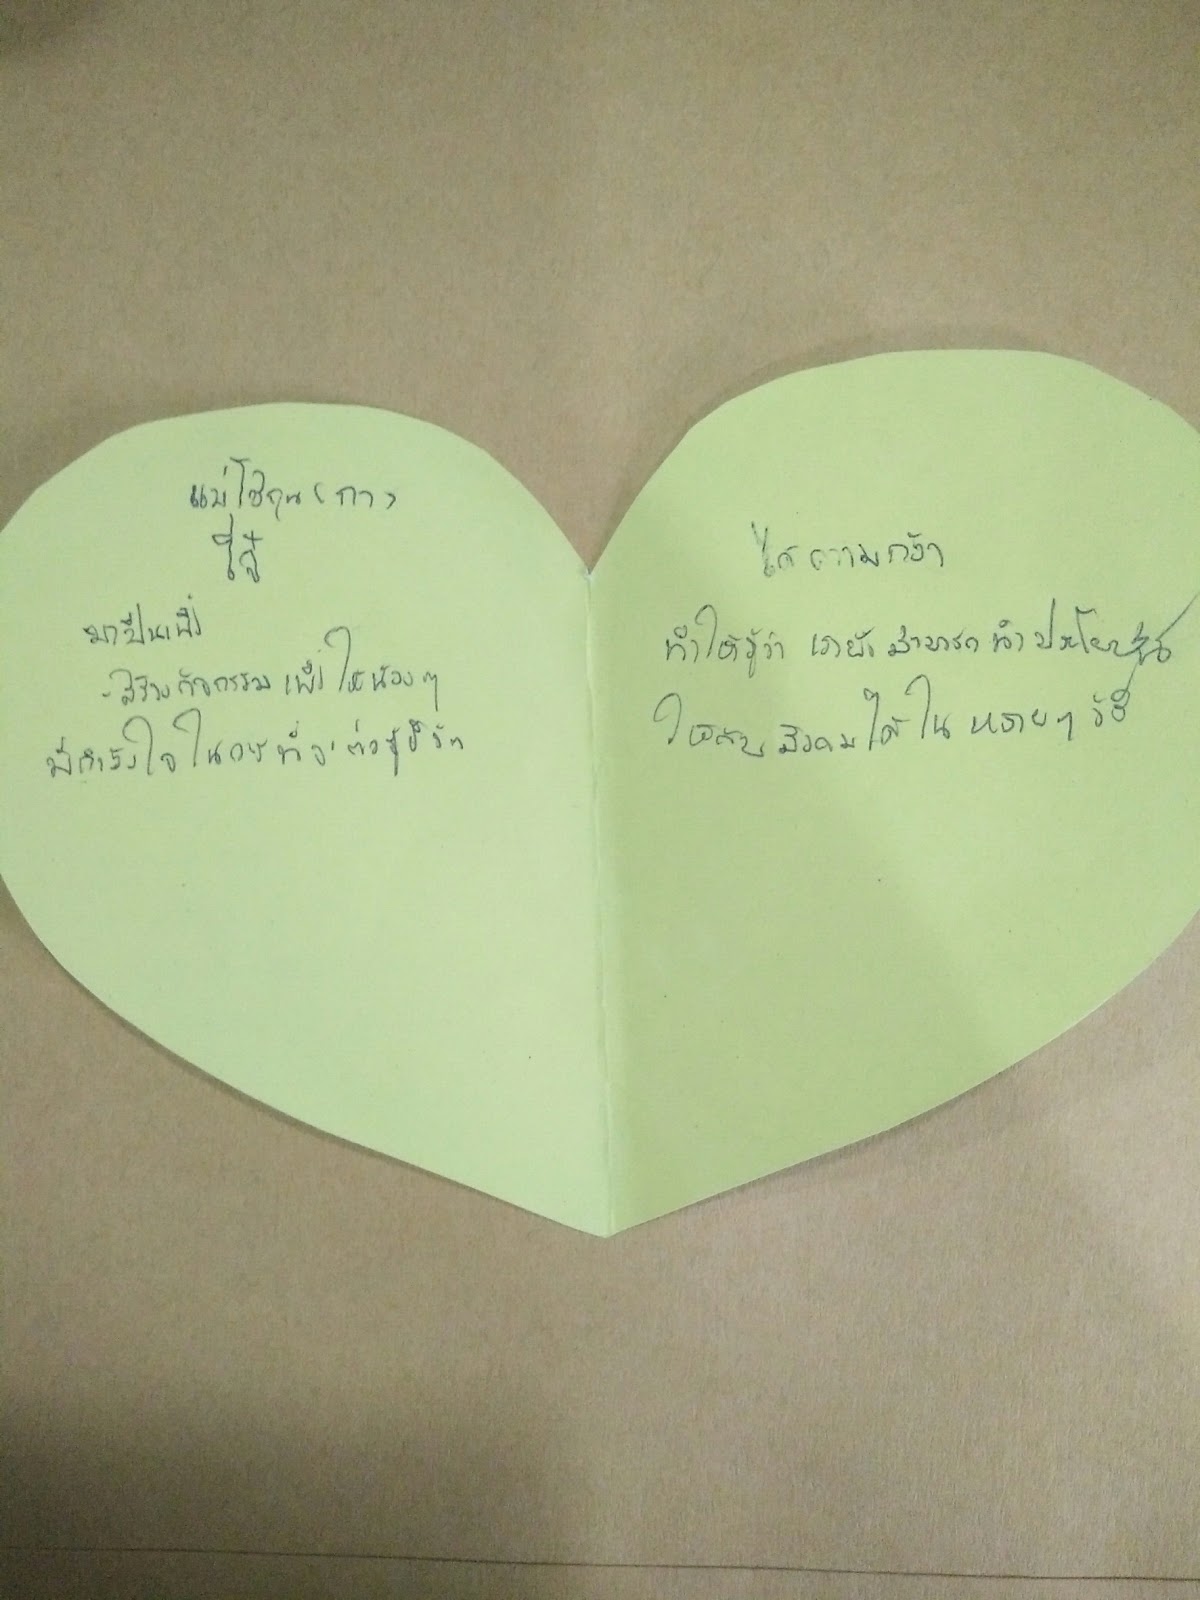 ให้
มาเป็นเพื่อ
- สร้างกิจกรรมเพื่อให้น้องๆ
มีกำลังใจในการที่จะต่อสู้ชีวิต
ได้ความกล้า
ทำให้รู้ว่า เรายังสามารถทำประโยชน์
ให้กับสังคมได้ใน หลายๆ วิธี